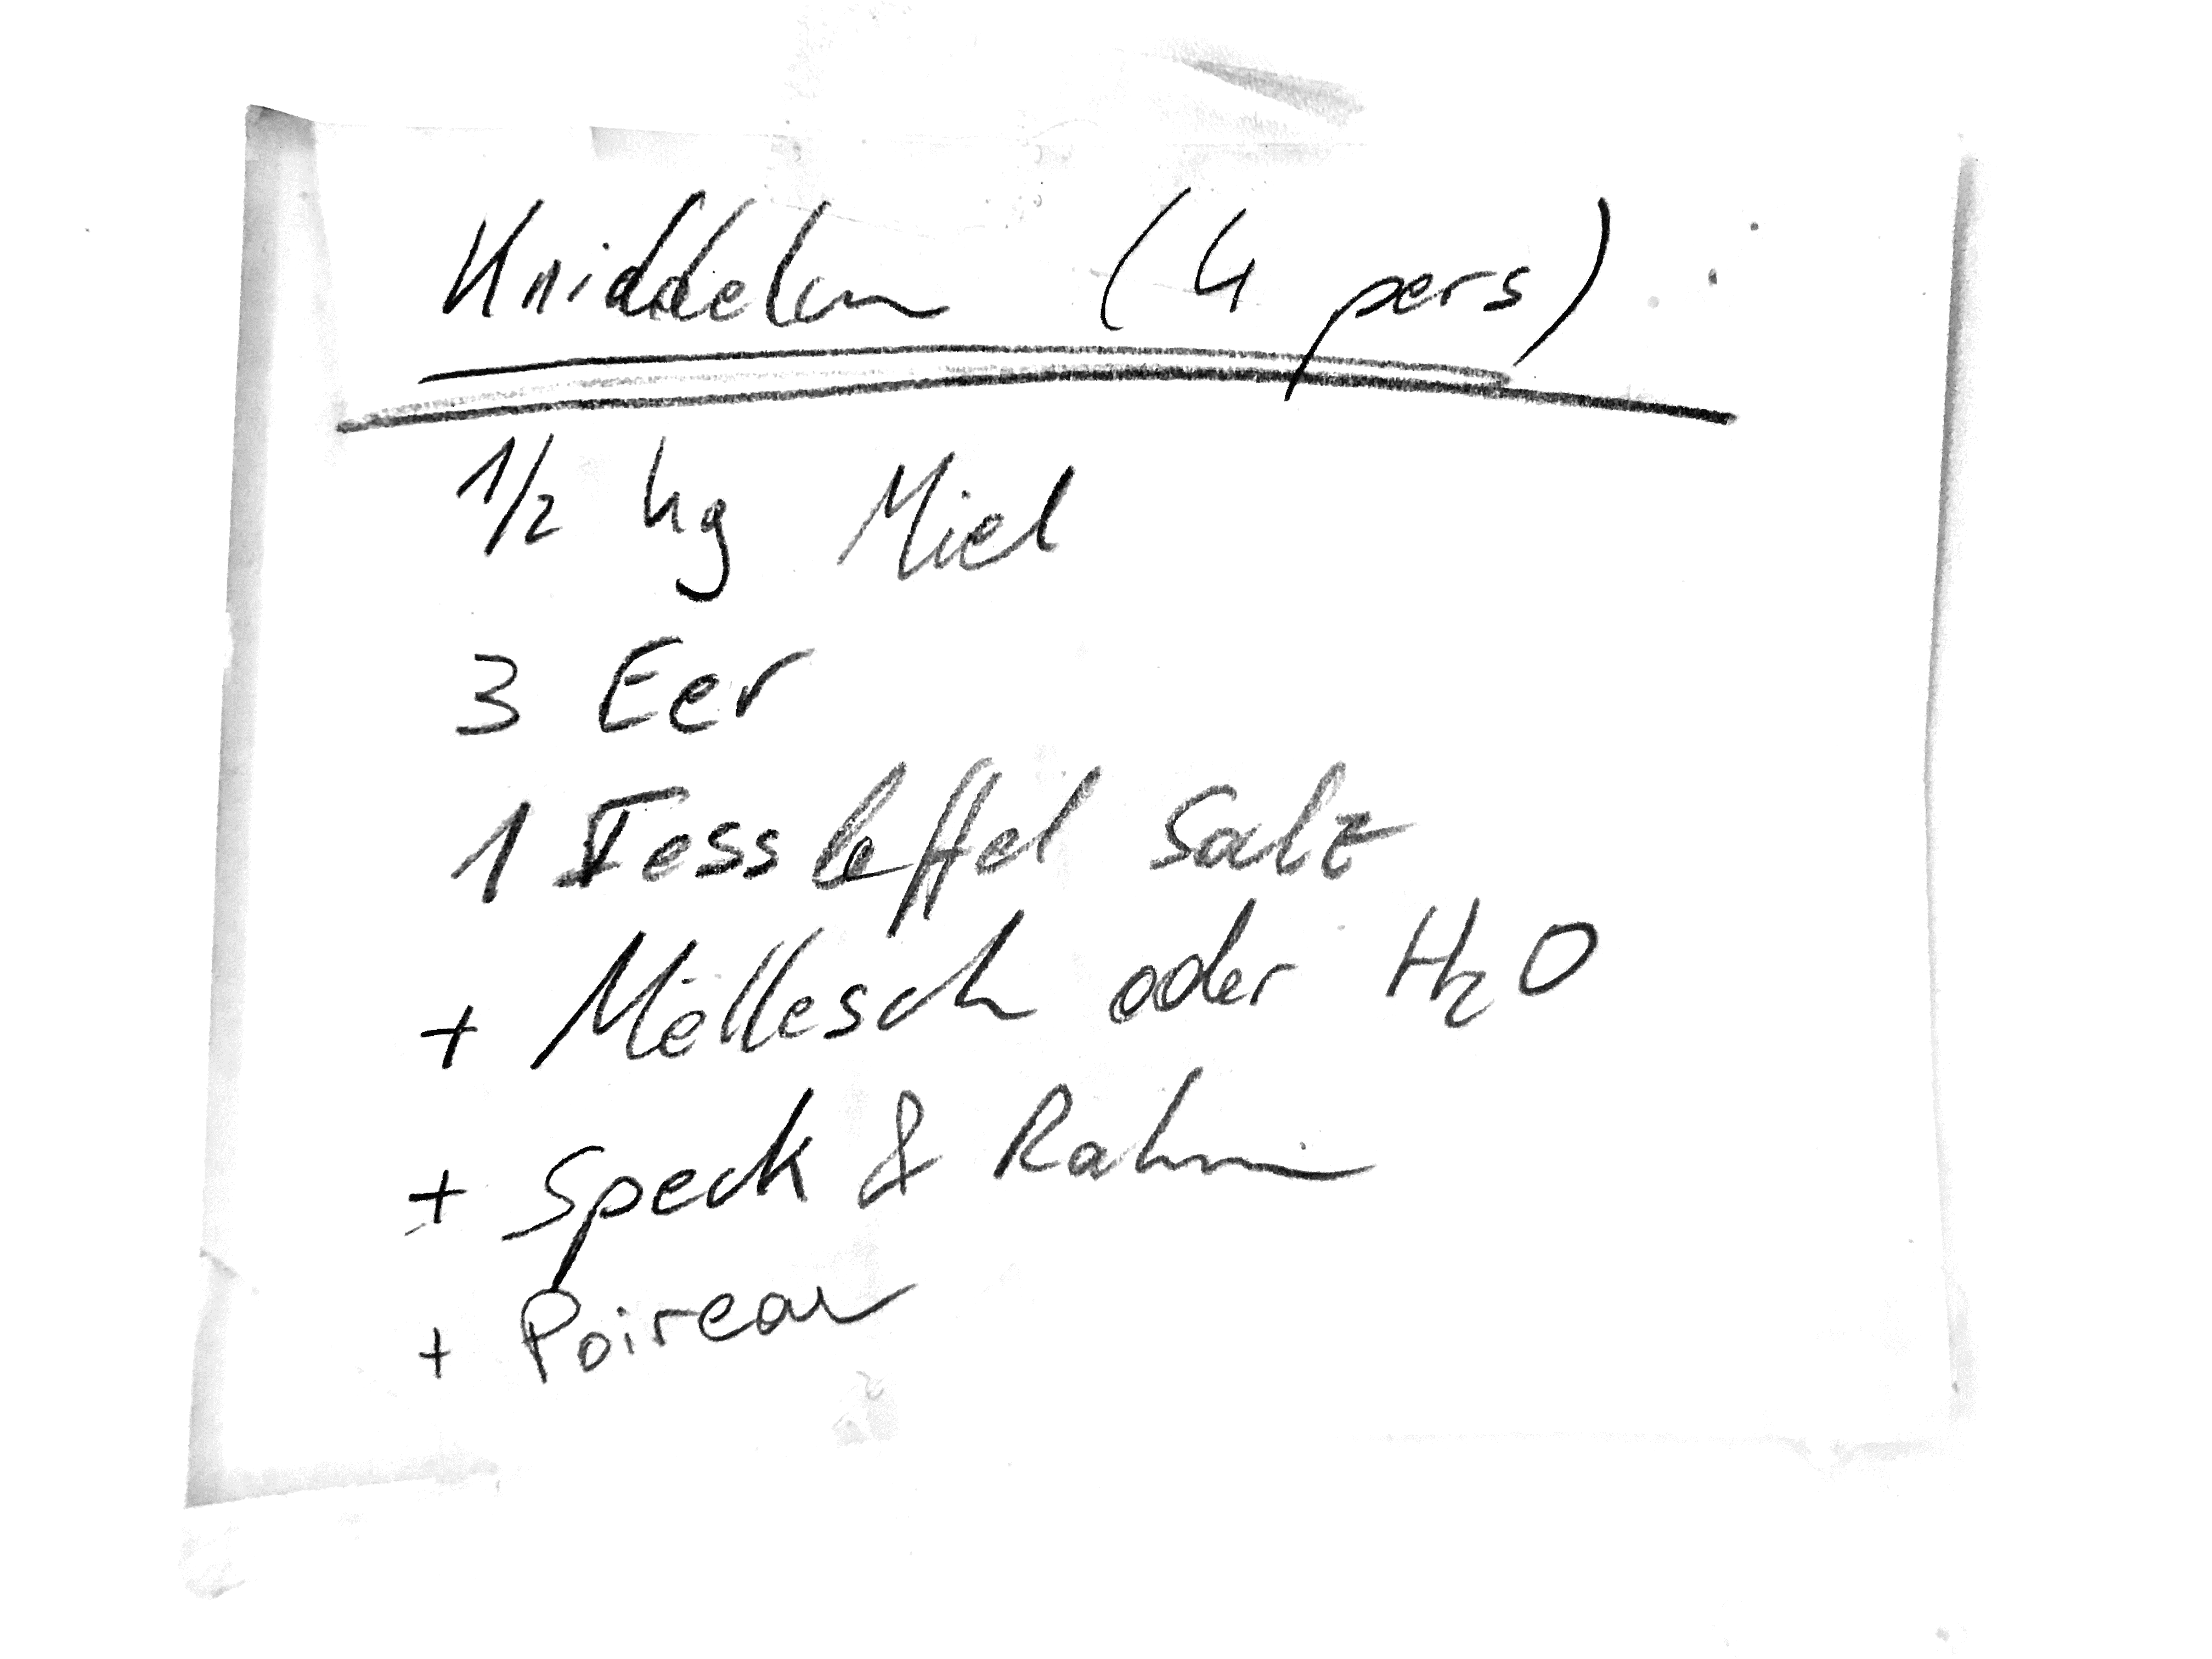 Kniddelen (4 pers)
1/2 kg Miel
3 Eer
1 Iessleffel Salz
+ Mëllesch oder H2O
+ Speck & Rahm
+ Poireau